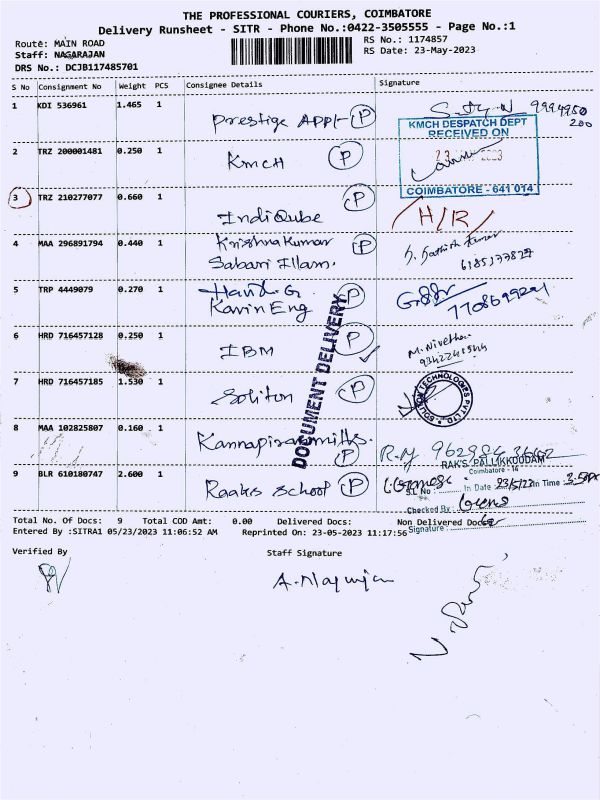 THE PROFESSIONAL COURIERS, COIMBATORE
Delivery Runsheet - SITR - Phone No.:0422-3505555 - Page No.:1
Route: MAIN ROAD
Staff: NAGARAJAN
DRS No.: DCJB117485701
RS No.: 1174857
RS Date: 23-May-2023
S No Consignment No Weight PCS Consignee Details Signature
1 KDI 536961 1.465 1 Prestige Appt- P 9994950
200
KMCH DESPATCH DEPT
RECEIVED ON
2 TRZ 200001481 0.250 1 KMCH P
COIMBATORE - 641 014
3 TRZ 210277077 0.660 1 IndiQube P H/R/
4 MAA 296891794 0.440 1 Krishnakumar P
Sabari Illam.
5 TRP 4449079 0.270 1 P
Kavin Eng
6 HRD 716457128 0.250 1 IBM P M. Nivetha
7 HRD 716457185 1.530 1 Soliton P
SOLITON TECHNOLOGIES PVT LTD
DOCUMENT DELIVERY
8 MAA 102825807 0.160 1 P
RAK'S PALLIKKOODAM
Coimbatore - 14
9 BLR 610180747 2.600 1 Raaks School P
S.L No : In Date 23/5/23 In Time :
Checked By
Signature :
Total No. Of Docs: 9 Total COD Amt: 0.00 Delivered Docs: Non Delivered Docs:
Entered By :SITRA1 05/23/2023 11:06:52 AM Reprinted On: 23-05-2023 11:17:56
Verified By Staff Signature